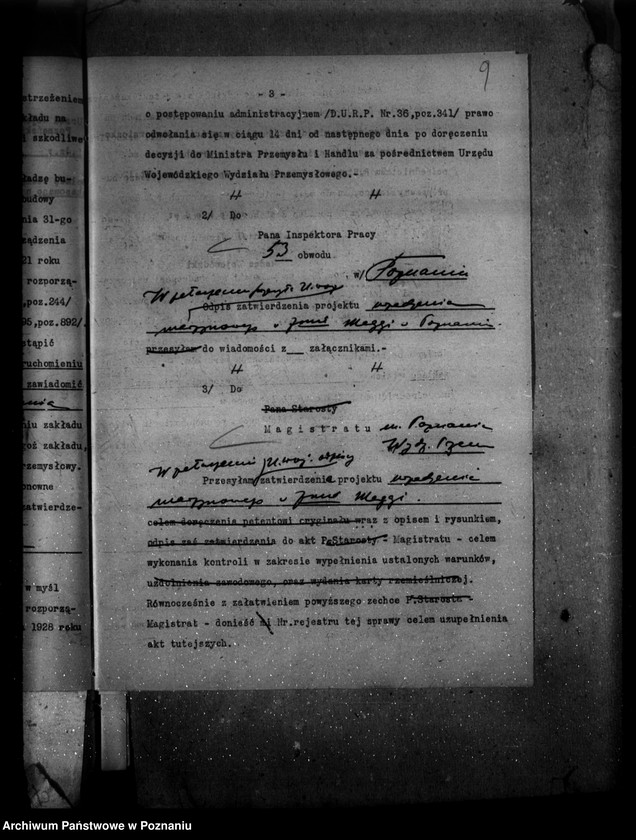 9
- 3 -
o postępowaniu administracyjnem /D.U.R.P. Nr.36,poz.341/ prawo
odwołania się w ciągu 14 dni od następnego dnia po doręczeniu
decyzji do Ministra Przemysłu i Handlu za pośrednictwem Urzędu
Wojewódzkiego Wydziału Przemysłowego.-
2/ Do
Pana Inspektora Pracy
53 obwodu
w/ Poznaniu
Odpis zatwierdzenia projektu urządzenia
maszynowego w firmie Maggi w Poznaniu.
przesyłam do wiadomości z__ załącznikami.-
3/ Do
Pana Starosty
Magistratu m. Poznania
Przesyłam zatwierdzenie projektu urządzenia
maszynowego w firmie Maggi.
celem doręczenia petentowi oryginału wraz z opisem i rysunkiem,
odpis zaś zatwierdzenia do akt P.Starosty - Magistratu - celem
wykonania kontroli w zakresie wypełnienia ustalonych warunków,
uzdolnienia zawodowego, oraz wydania karty rzemieślniczej.
Równocześnie z załatwieniem powyższego zechce P.Starosta -
Magistrat - donieść mi Nr.rejestru tej sprawy celem uzupełnienia
akt tutejszych.
strzeżeniem
kładu na
i szkodliwe
ładzę bu-
budowy
nia 31-go
ządzenia
21 roku
rozporzą-
,poz.244/
95,poz.892/
stąpić
ruchomieniu
zawiadomić
niu zakładu
oś zakładu,
rzemysłowy.
onowne
zatwierdze-
w myśl
rozporzą-
1928 roku
Archiwum Państwowe w Poznaniu